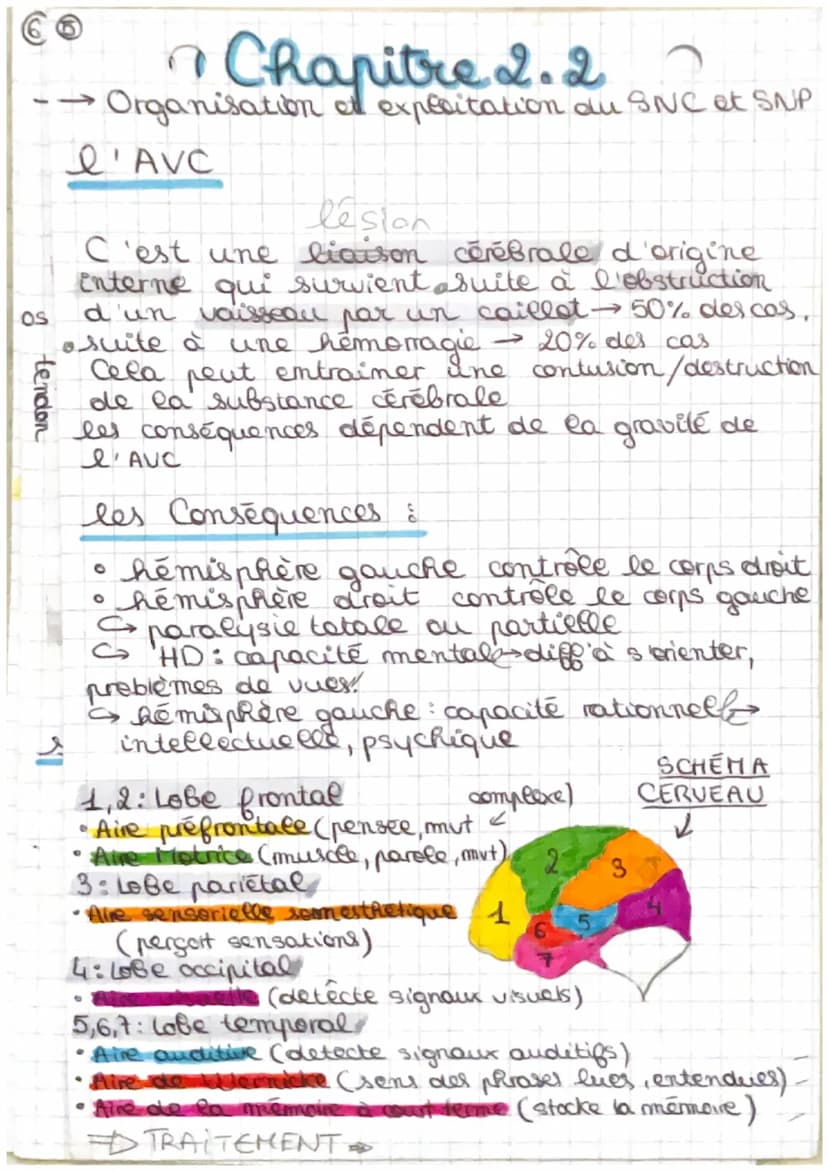 6 5
Chapitre 2.2
--> Organisation et exploitation du SNC et SNP
l'AVC
lésion
C'est une liaison cérébrale d'origine
interne qui survient • suite à l'obstruction
d'un vaisseau par un caillot → 50% des cas,
• suite à une hémorragie → 20% des cas
Cela peut entrainer une contusion/destruction
de la substance cérébrale
les conséquences dépendent de la gravité de
l'AVC
os tendon
les Conséquences :
• hémisphère gauche contrôle le corps droit
• hémisphère droit contrôle le corps gauche
↳ paralysie totale ou partielle
↳ HD : capacité mental → diff à s'orienter,
problèmes de vues!
↳ hémisphère gauche : capacité rationnelle →
intellectuelle, psychique
SCHÉMA
CERVEAU
1,2 : Lobe frontal
complexe)
• Aire préfrontale (pensée, mvt
• Aire Motrice (muscle, parole, mvt)
3 : Lobe pariétal
• Aire sensorielle somesthétique
(perçoit sensations)
4 : Lobe occipital
• Aire visuelle (détècte signaux visuels)
5,6,7 : lobe temporal
• Aire auditive (detecte signaux auditifs)
• Aire de Wernicke (sens des phrases lues, entendues)
• Aire de la mémoire à court terme (stocke la mémoire)
1 2 3 4 5 6 7
⇒ TRAITEMENT ⇒